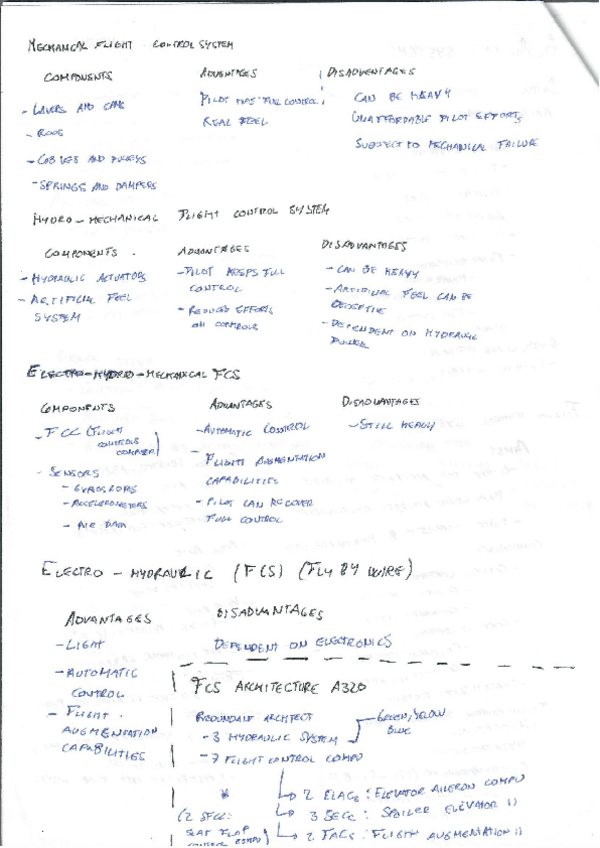 MECHANICAL FLIGHT CONTROL SYSTEM
COMPONENTS
- LAVERS AND CAMS
- RODS
- COBLES AND PULLEYS
- SPRINGS AND DAMPERS
ADVANTAGES
PILOT HAS FULL CONTROL
REAL FEEL
DISADVENTAGES
CAN BE HEAVY
UNAFFORDABLE PILOT EFFORTS
SUBJECT TO MECHANICAL FAILURE
HYDRO-MECHANICAL FLIGHT CONTROL SYSTEM
COMPONENTS
- HYDRAULIC ACTUATORS
- ARTIFICIAL FEEL
SYSTEM
ADVANTAGES
- PILOT KEEPS FULL
CONTROL
- REDUCED EFFORTS
ON CONTROLS
DISADVANTAGES
- CAN BE HEAVY
- ARTIFICIAL FEEL CAN BE
DECEPTIVE
- DEPENDENT ON HYDRAULIC
POWER
ELECTRO-HYDRO-MECHANICAL FCS
COMPONENTS
- FCC (FLIGHT
CONTROLS
COMPUTER)
- SENSORS
- GYROSCOPS
- ACCELEROMETERS
- AIR DATA
ADVANTAGES
- AUTOMATIC CONTROL
- FLIGHT AUGMENTATION
CAPABILITIES
- PILOT CAN RECOVER
FULL CONTROL
DISADVANTAGES
- STILL HEAVY
ELECTRO-HYDRAULIC (FCS) (FLY BY WIRE)
ADVANTAGES
- LIGHT
- AUTOMATIC
CONTROL
- FLIGHT
AUGMENTATION
CAPABILITIES
DISADVANTAGES
DEPENDENT ON ELECTRONICS
FCS ARCHITECTURE A320
REDUNDANT ARCHITECT
- 3 HYDRAULIC SYSTEM
GREEN, YELLOW
BLUE
- 7 FLIGHT CONTROL COMPU
2 ELACs: ELEVATOR AILERON COMPU
3 SECs: SPOILER ELEVATOR 11
2 FACs: FLIGTH AUGMENTATION 11
*
(2 SFCC:
SLAT FLAP
CONTROL COMPU)